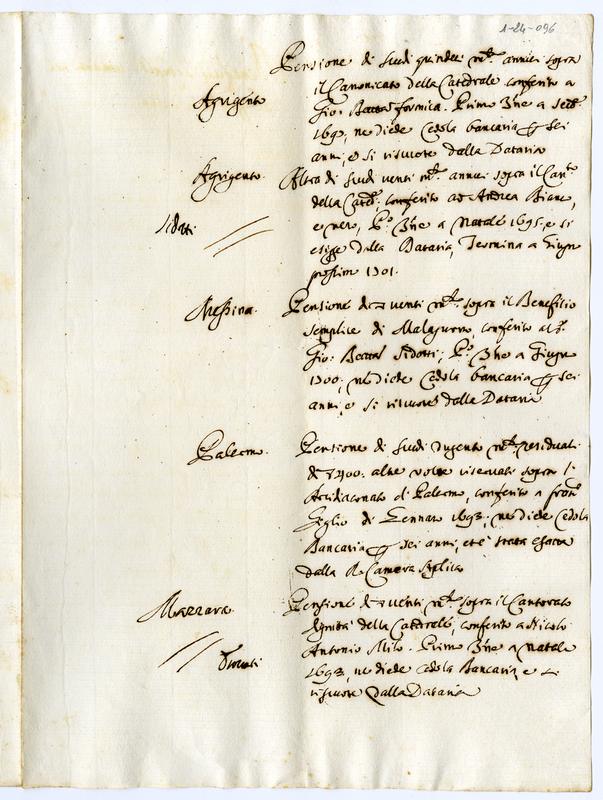 1-24-096
Pensione di scudi quindeci m.ta annui sopra
il Canonicato della Catedrale conferito a
Agrigento
Gio. Batta formica. Primo 3ne a
1690, ne diede Cedola bancaria p sei
anni, e si riscuote dalla Dataria
Agrigento. Altra di scudi venti m.ta annui sopra il Can.to
della Cated. conferito ad Andrea Bianc,
Sidoti
e nero, P.o 3ne a Natale 1695, e si
esige dalla Dataria, Termina a Giugn
prossim 1701.
Messina. Pensione di venti m.ta sopra il Beneficio
semplice di conferito al
Gio. Batta Sidotti; P.o 3ne a Giugn
1700, ne diede Cedola bancaria p sei
anni, e si riscuote dalla Dataria
Palermo. Pensione di scudi ducento m.ta residuali
di 400. altre volte riservati sopra l'
Arcidiaconato di Palermo, conferito a
Giglio di Gennaro 1693, ne diede Cedola
Bancaria p sei anni, et è stata esatta
dalla R. Camera Aplica
Mazzara. Pensione di venti m.ta sopra il Cantorato
dignità della Catedrale, conferito a Nicolò
Antonio Milo. Primo 3ne a Natale
1693, ne diede cedola Bancaria, e si
riscuote dalla Dataria